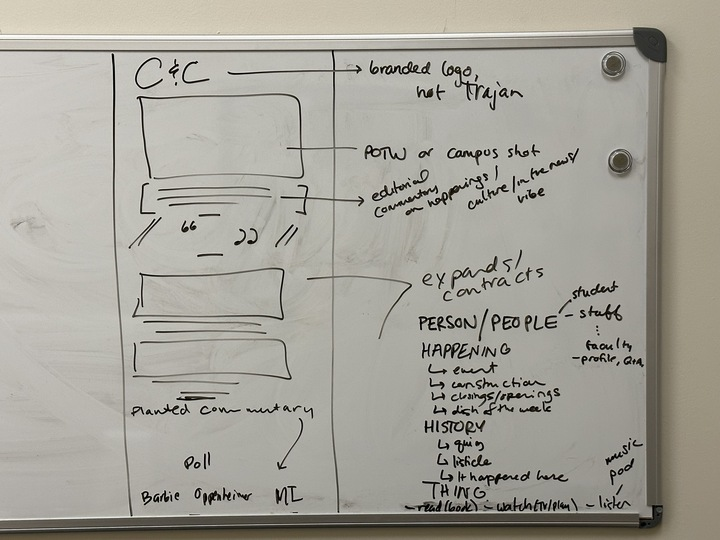 C & C
branded logo,
not Trajan
POTW or campus shot
editorial
commentary
on happenings/
culture/in the news/
vibe
// “ ” //
expands/
contracts
PERSON/PEOPLE
- student
- staff
⋮
faculty
- profile, Q&A
HAPPENING
↳ event
↳ construction
↳ closings/openings
↳ dish of the week
HISTORY
↳ quiz
↳ listicle
↳ It happened here
THING
- read (book) - watch (TV/play) - listen
music
pod
planted commentary
Poll
Barbie Oppenheimer MI